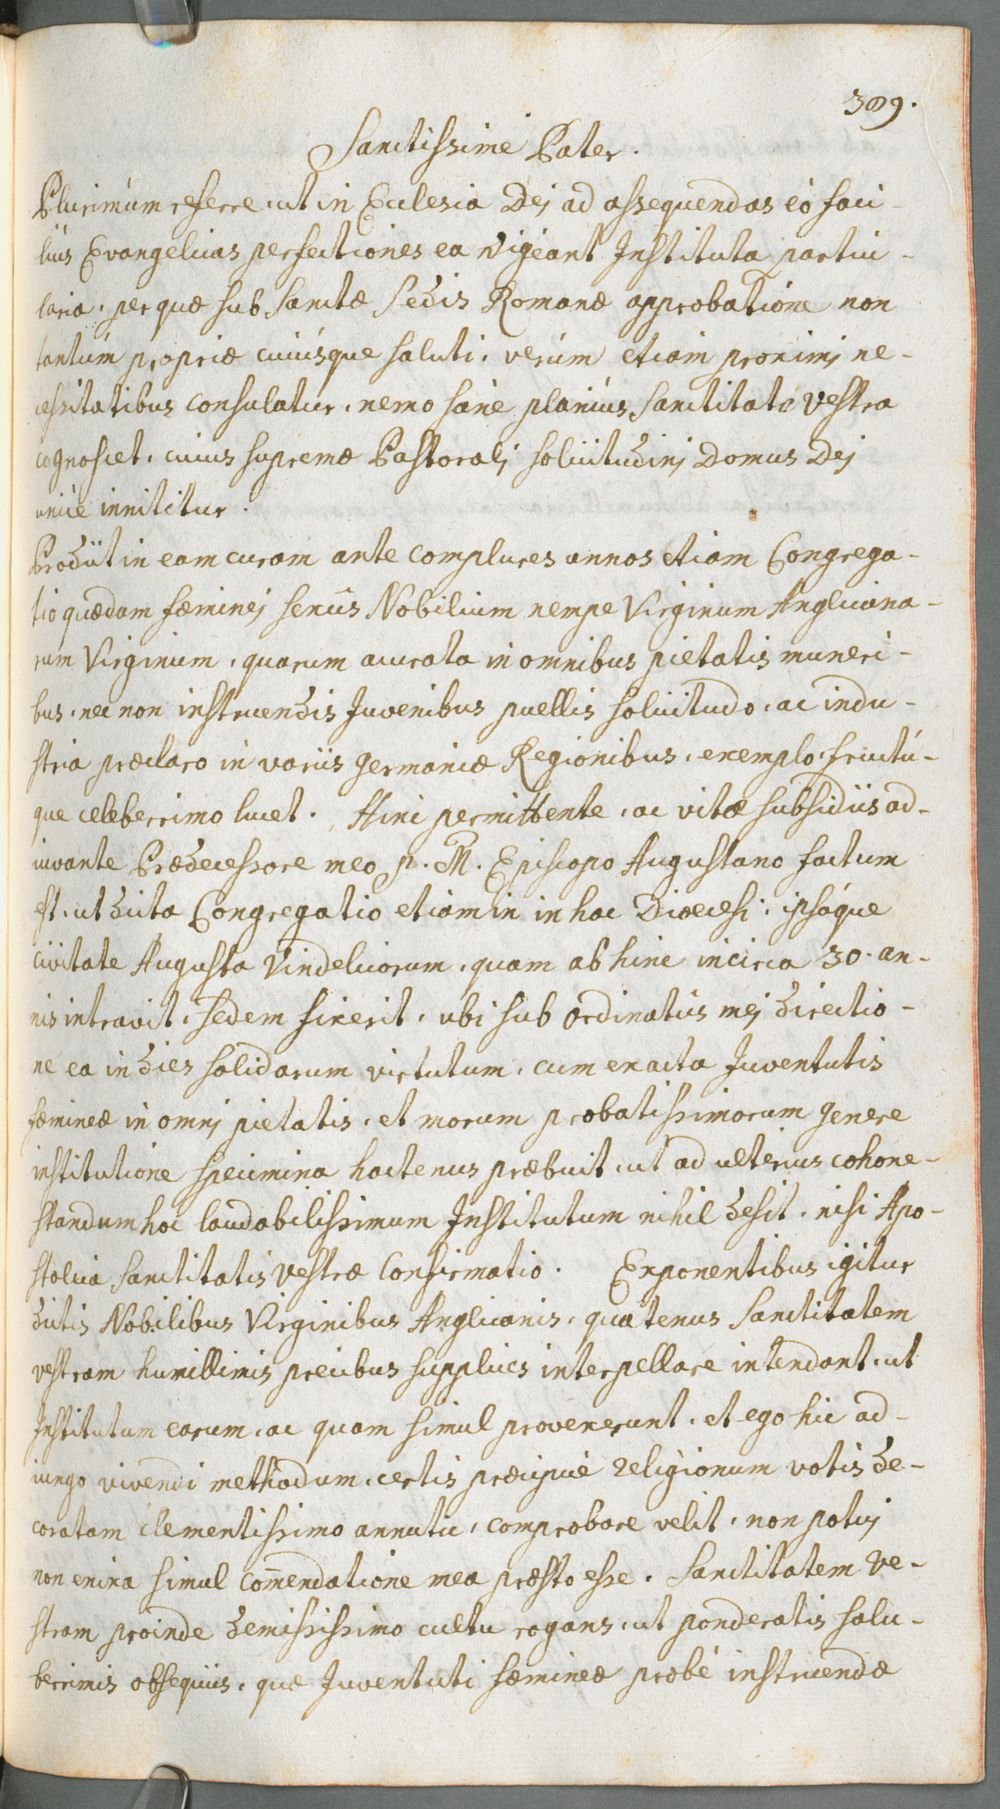 309.
Sanctissime Pater.
Plurimùm referre, ut in Ecclesia Dej ad assequendas eò faci-
lius Evangelicas perfectiones ea vigeant Instituta particu-
laria, per quæ sub Sanctæ Sedis Romanæ approbatione non
tantùm propriæ cuiusque saluti, verùm etiam proximj ne-
cessitatibus consulatur, nemo sanè planius Sanctitate Vestra
cognoscet, cuius supremæ Pastoralj solicitudinj Domus Dej
unicè innititur.
Prodiit in eam curam ante complures annos etiam Congrega-
tio quædam fæminej sexûs Nobilium nempe Virginum Anglicana-
rum Virginum, quarum accurata in omnibus pietatis muneri-
bus, nec non instruendis Juvenibus puellis solicitudo, ac indu-
stria præclaro in variis Germaniæ Regionibus, exemplo, fructú-
que celeberrimo lucet. Hinc permittente, ac vitæ subsidiis ad-
iuvante Prædecessore meo p. M. Episcopo Augustano factum
est, ut dicta Congregatio etiam in in hac Dioecesi, ipsáque
Civitate Augusta Vindelicorum, quam ab hinc in circa 30. an-
nis intravit, sedem fixerit, ubi sub Ordinatûs mej directio-
ne ea in dies solidarum virtutum, cum exacta Juventutis
fæmineæ in omnj pietatis, et morum probatissimorum genere
institutione specimina hactenus præbuit, ut ad ulterius cohone-
standum hoc laudabilissimum Institutum nihil desit, nisi Apo-
stolica Sanctitatis Vestræ Confirmatio. Exponentibus igitur
dictis Nobilibus Virginibus Anglicanis, quatenus Sanctitatem
vestram humillimis precibus supplices interpellare intendant, ut
Institutum earum, ac quam simul provexerunt, et ego hic ad-
iungo vivendi methodum, certis præcipuè religionum votis de-
coratam clementissimo annutu, comprobare velit, non potuj
non enixa simul Com̄endatione mea præsto esse. Sanctitatem Ve-
stram proinde demississimo cultu rogans, ut ponderatis salu-
berrimis obsequiis, quæ Juventuti fæmineæ probè instruendæ